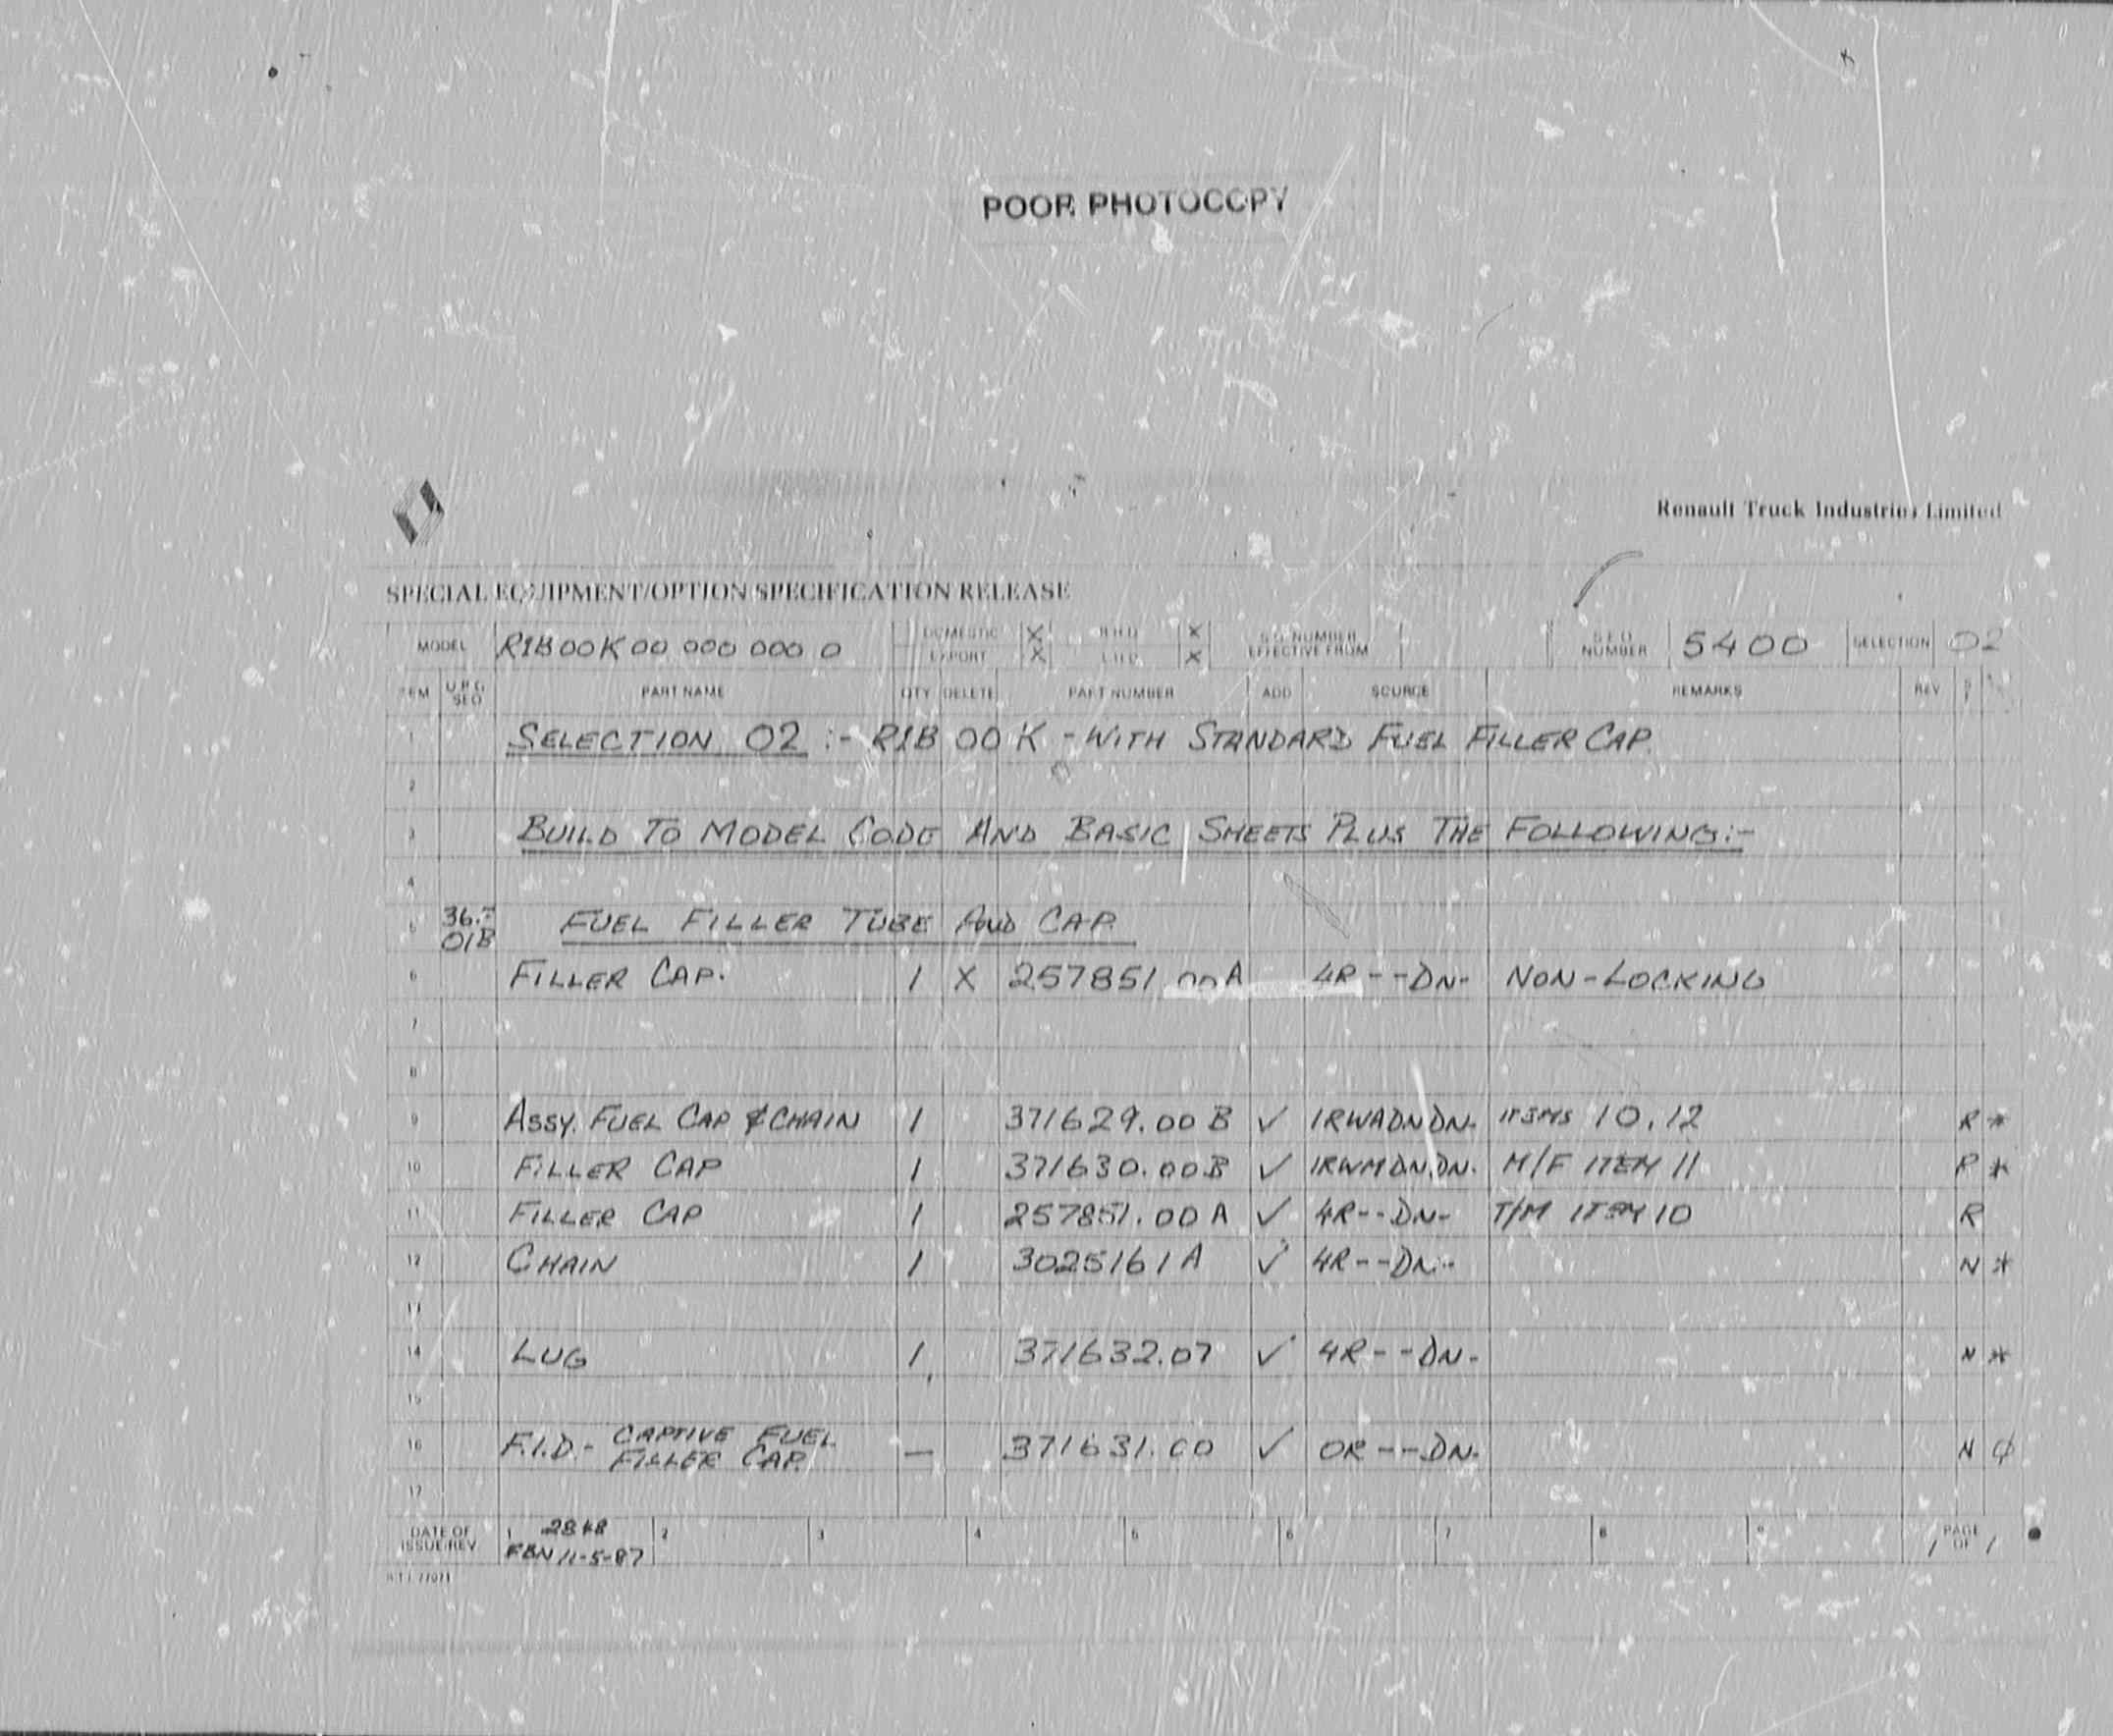 POOR PHOTOCOPY
Renault Truck Industries Limited
SPECIAL EQUIPMENT/OPTION SPECIFICATION RELEASE
MODEL R1B00K00 000 000 0 DOMESTIC X R.H.D. X S.O. NUMBER EFFECTIVE FROM S.E.O. NUMBER 5400 SELECTION 02
EXPORT X L.H.D. X
ITEM U.P.G. SEQ PART NAME QTY DELETE PART NUMBER ADD SOURCE REMARKS REV
1 SELECTION 02 :- R1B 00 K - WITH STANDARD FUEL FILLER CAP.
2
3 BUILD TO MODEL CODE AND BASIC SHEETS PLUS THE FOLLOWING:-
4
5 36.- 01B FUEL FILLER TUBE AND CAP.
6 FILLER CAP. 1 X 257851.00A 4R--DN- NON-LOCKING
7
8
9 ASSY. FUEL CAP & CHAIN 1 371629.00 B ✓ 1RWADNDN- ITEMS 10,12 R *
10 FILLER CAP 1 371630.00B ✓ 1RWMDNDN- M/F ITEM 11 R *
11 FILLER CAP 1 257851.00 A ✓ 4R--DN- T/M ITEM 10 R
12 CHAIN 1 3025161A ✓ 4R--DN- N *
13
14 LUG 1 371632.07 ✓ 4R--DN- N *
15
16 F.I.D.- CAPTIVE FUEL FILLER CAP. — 371631.00 ✓ OR--DN- N φ
17
DATE OF ISSUE/REV 1 FBN 11-5-87 2 3 4 5 6 7 8 9 PAGE 1 OF 1
R.T.I. 77071